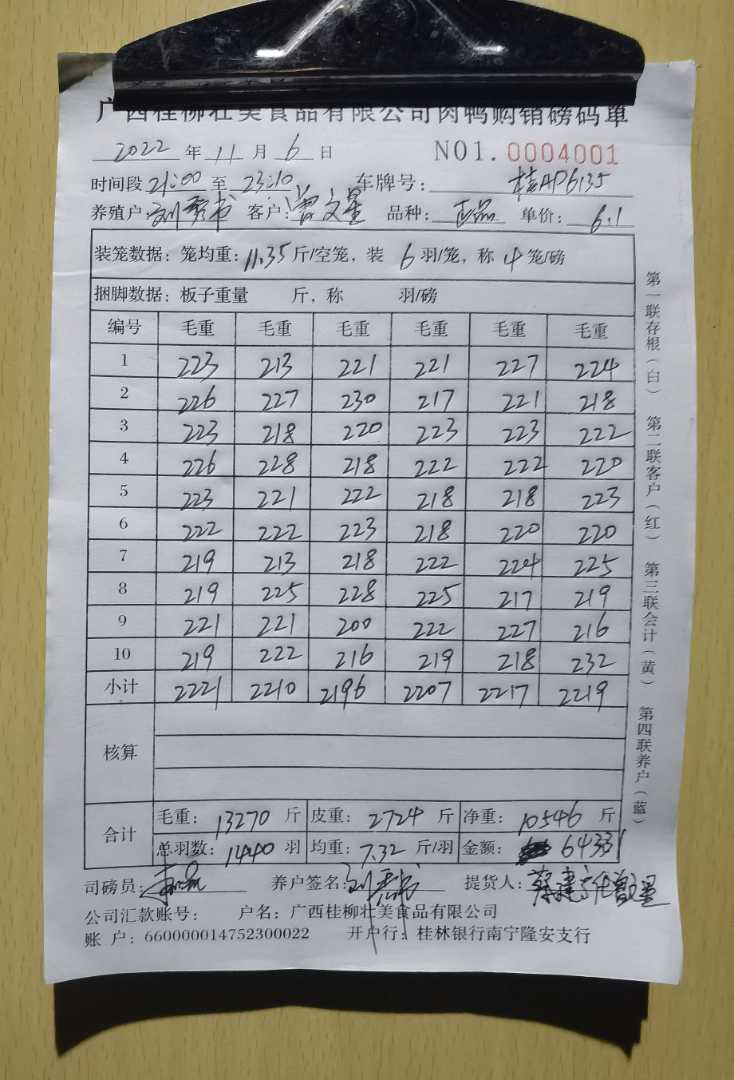 广西桂柳壮美食品有限公司肉鸭购销磅码单
2022 年 11 月 6 日 NO1. 0004001
时间段 21:00 至 23:10 车牌号: 桂AP6135
养殖户: 客户: 曾文星 品种: 正品 单价: 6.1
装笼数据: 笼均重: 11.35 斤/空笼, 装 6 羽/笼, 称 4 笼/磅
捆脚数据: 板子重量 斤, 称 羽/磅
编号 毛重 毛重 毛重 毛重 毛重 毛重
1 223 213 221 221 227 224
2 226 227 230 217 221 218
3 223 218 220 223 223 222
4 226 228 218 222 222 220
5 223 221 222 218 218 223
6 222 222 223 218 220 220
7 219 213 218 222 224 225
8 219 225 228 225 217 219
9 221 221 200 222 227 216
10 219 222 216 219 218 232
小计 2221 2210 2196 2207 2217 2219
核算
合计
毛重: 13270 斤 皮重: 2724 斤 净重: 10546 斤
总羽数: 1440 羽 均重: 7.32 斤/羽 金额: 64331
司磅员: 养户签名: 提货人:
公司汇款账号: 户名: 广西桂柳壮美食品有限公司
账 户: 660000014752300022 开户行: 桂林银行南宁隆安支行
第一联存根(白) 第二联客户(红) 第三联会计(黄) 第四联养户(蓝)